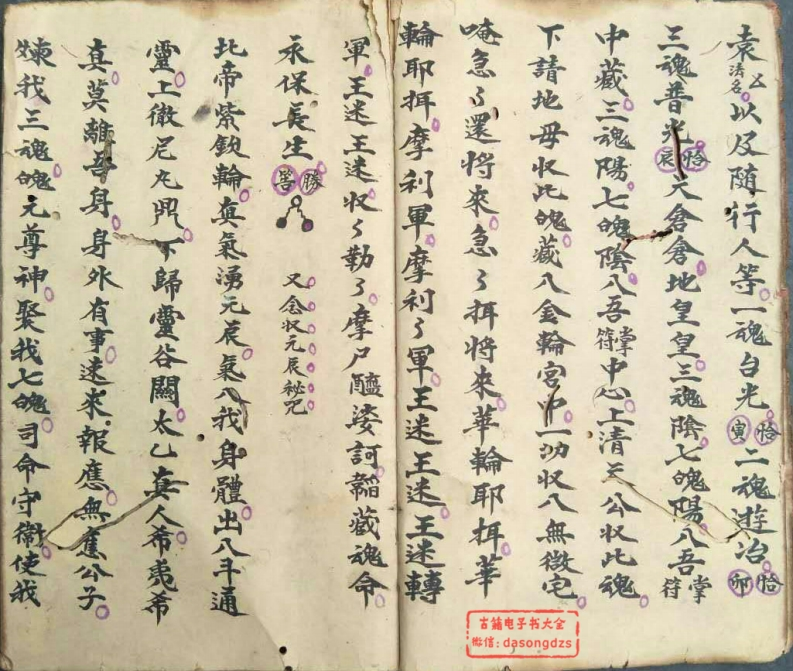 袁厶法名以及随行人等一魂台光恰寅二魂遊冶恰卯
三魂普光恰辰天倉倉地皇皇三魂陰七魄陽入吾掌符
中藏三魂陽七魄陰入吾掌符中心上清三公收此魂
下請地母收此魄藏入金輪宮中一切收入無微宅
唵急〻還将來急〻揖将來華輪耶揖華
輪耶揖摩利軍摩利〻軍王迷王迷王迷轉
軍王迷王迷収〻勒〻摩尸醯婆訶韜藏魂命
永保長生勝筶
又念収元辰秘咒
北帝紫欽輪真氣湧元辰氣入我身體出入斗通
靈上徹尼丸門下歸靈谷關太乙真人希夷希
真莫離吾身身外有事速來報應無蕉公子
煉我三魂魄元尊神聚我七魄司命守衛使我
古籍电子书大全
微信:dasongdzs